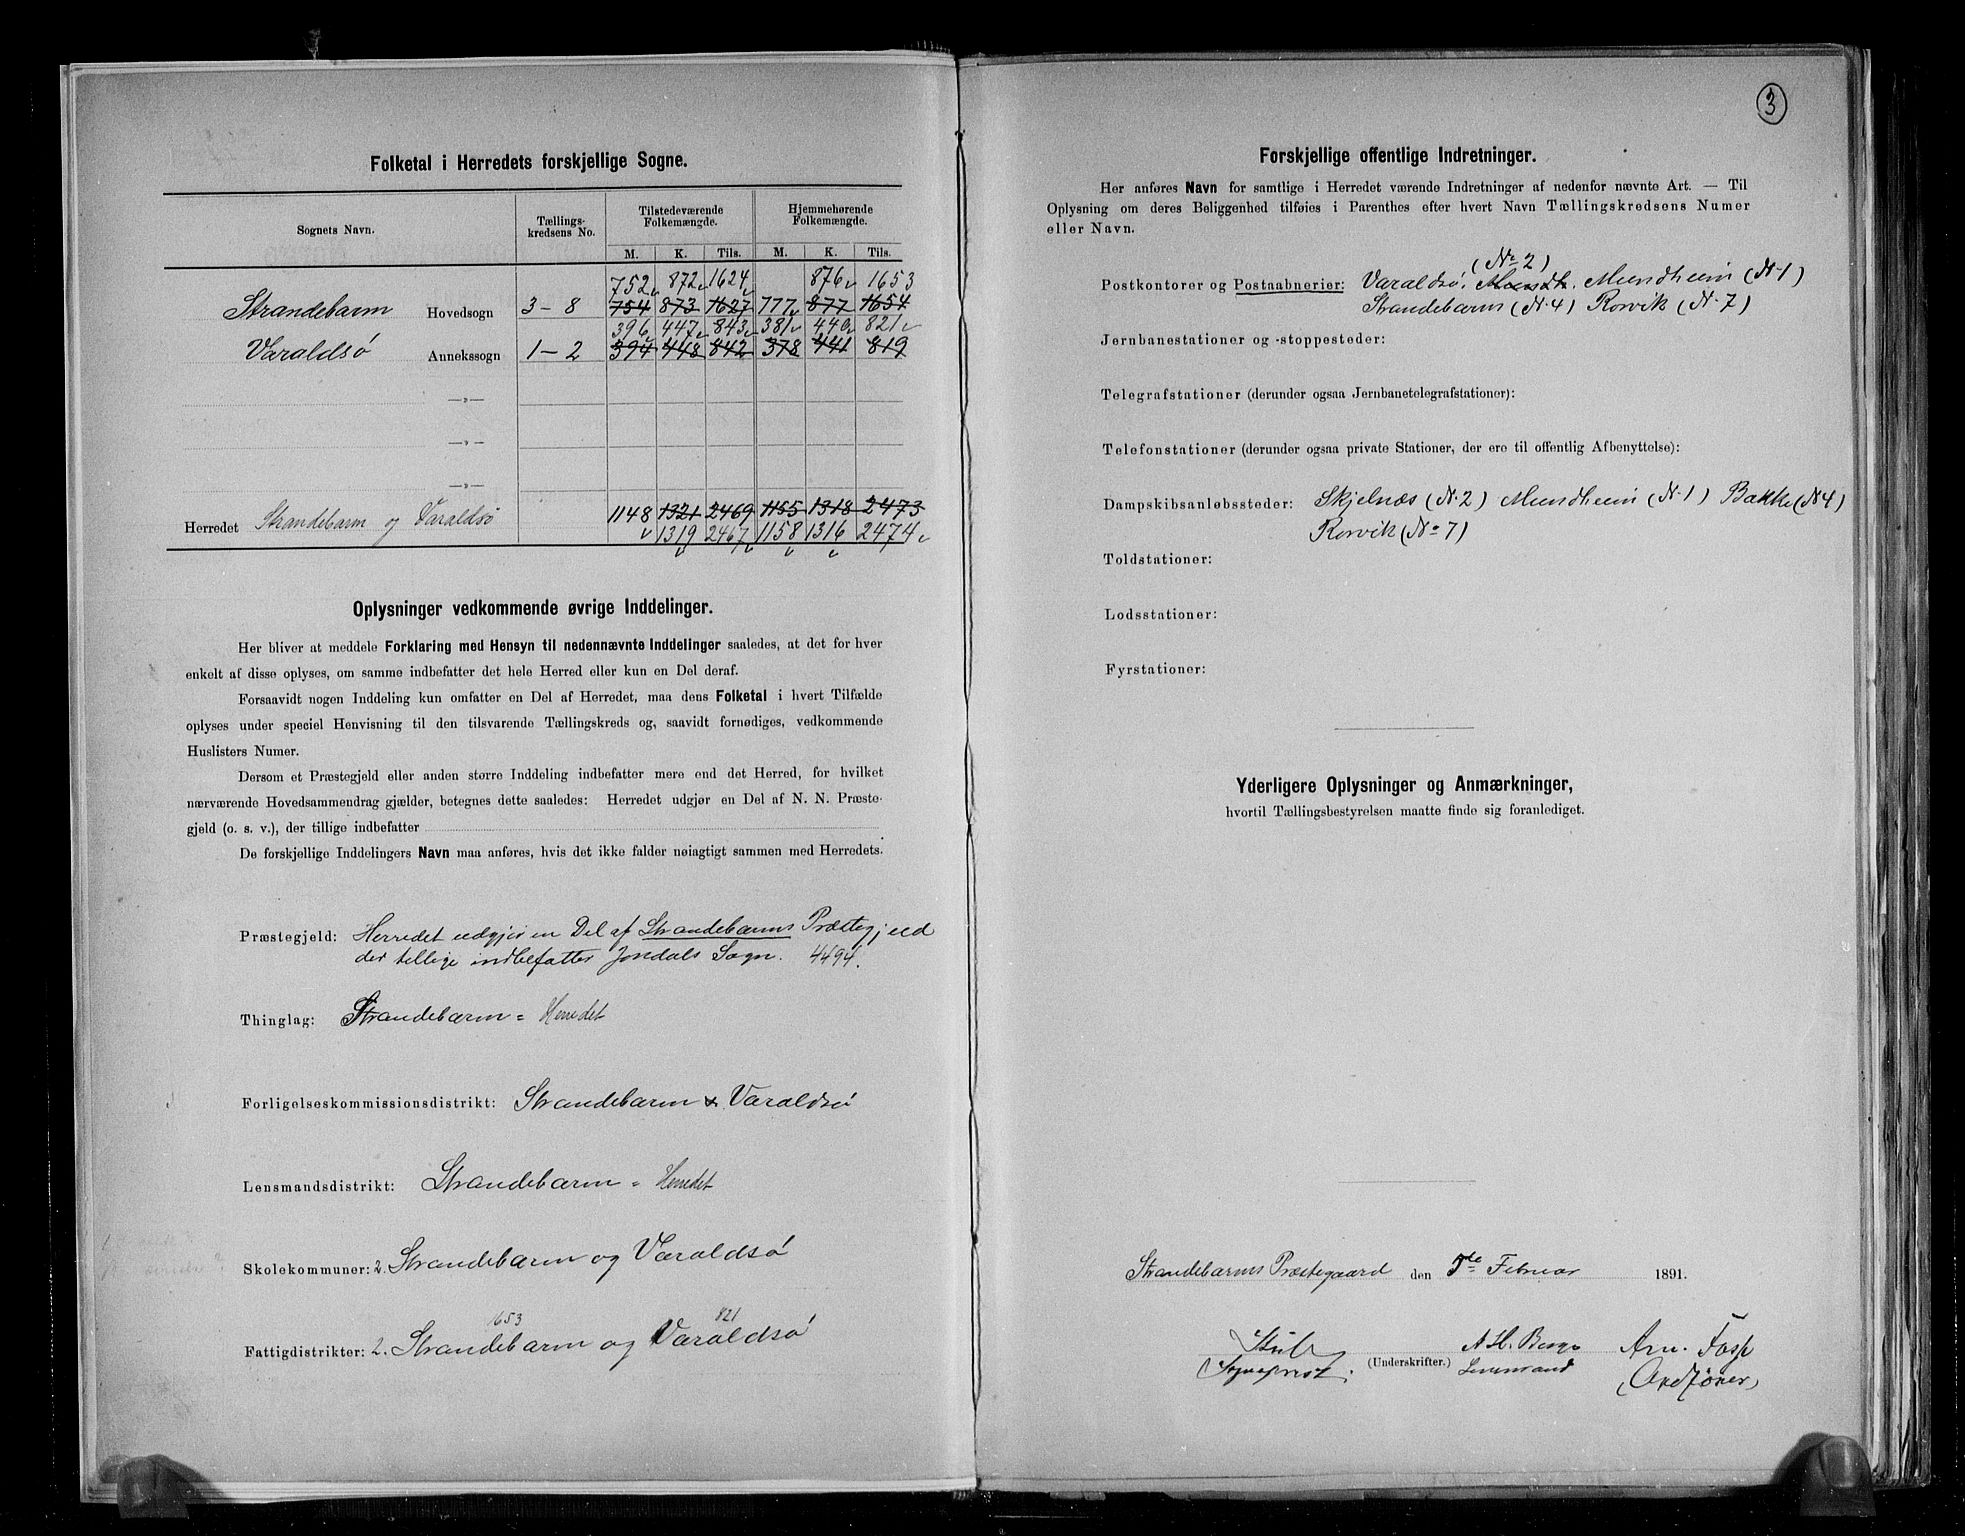 Folketal i Herredets forskjellige Sogne.
Sognets Navn. Tællings-kredsens No. Tilstedeværende Folkemængde. Hjemmehørende Folkemængde.
M. K. Tils. M. K. Tils.
752 872 1624 876 1653
Strandebarm Hovedsogn 3-8 754 873 1627 777 877 1654
396 447 843 381 440 821
Varaldsø Annekssogn 1-2 394 448 842 378 441 819
—»—
—»—
—»—
Herredet Strandebarm og Varaldsø 1148 1321 2469 1155 1318 2473
1319 2467 1158 1316 2474
Oplysninger vedkommende øvrige Inddelinger.
Her bliver at meddele Forklaring med Hensyn til nedennævnte Inddelinger saaledes, at det for hver
enkelt af disse oplyses, om samme indbefatter det hele Herred eller kun en Del deraf.
Forsaavidt nogen Inddeling kun omfatter en Del af Herredet, maa dens Folketal i hvert Tilfælde
oplyses under speciel Henvisning til den tilsvarende Tællingskreds og, saavidt fornødiges, vedkommende
Huslisters Numer.
Dersom et Præstegjeld eller anden større Inddeling indbefatter mere end det Herred, for hvilket
nærværende Hovedsammendrag gjælder, betegnes dette saaledes: Herredet udgjør en Del af N. N. Præste-
gjeld (o. s. v.), der tillige indbefatter
De forskjellige Inddelingers Navn maa anføres, hvis det ikke falder nøiagtigt sammen med Herredets.
Præstegjeld: Herredet udgjør en Del af Strandebarms Præstegjeld
der tillige indbefatter Jondals Sogn. 4494.
Thinglag: Strandebarm = Herredet
Forligelseskommissionsdistrikt: Strandebarm & Varaldsø
Lensmandsdistrikt: Strandebarm = Herredet
Skolekommuner: 2. Strandebarm og Varaldsø
1653 821
Fattigdistrikter: 2. Strandebarm og Varaldsø
3
Forskjellige offentlige Indretninger.
Her anføres Navn for samtlige i Herredet værende Indretninger af nedenfor nævnte Art. — Til
Oplysning om deres Beliggenhed tilføies i Parenthes efter hvert Navn Tællingskredsens Numer
eller Navn.
(No 2)
Postkontorer og Postaabnerier: Varaldsø, Mundh. Mundheim (N. 1)
Strandebarm (N. 4) Rorvik (N. 7)
Jernbanestationer og -stoppesteder:
Telegrafstationer (derunder ogsaa Jernbanetelegrafstationer):
Telefonstationer (derunder ogsaa private Stationer, der ere til offentlig Afbenyttelse):
Dampskibsanløbssteder: Skjelnæs (N. 2) Mundheim (N. 1) Bakke (N 4)
Rorvik (No 7)
Toldstationer:
Lodsstationer:
Fyrstationer:
Yderligere Oplysninger og Anmærkninger,
hvortil Tællingsbestyrelsen maatte finde sig foranlediget.
Strandebarms Præstegaard den 5te Februar 1891.
A H. Berge Arn. Foss
Sognepræst. (Underskrifter.) Lensmand (Ordfører)